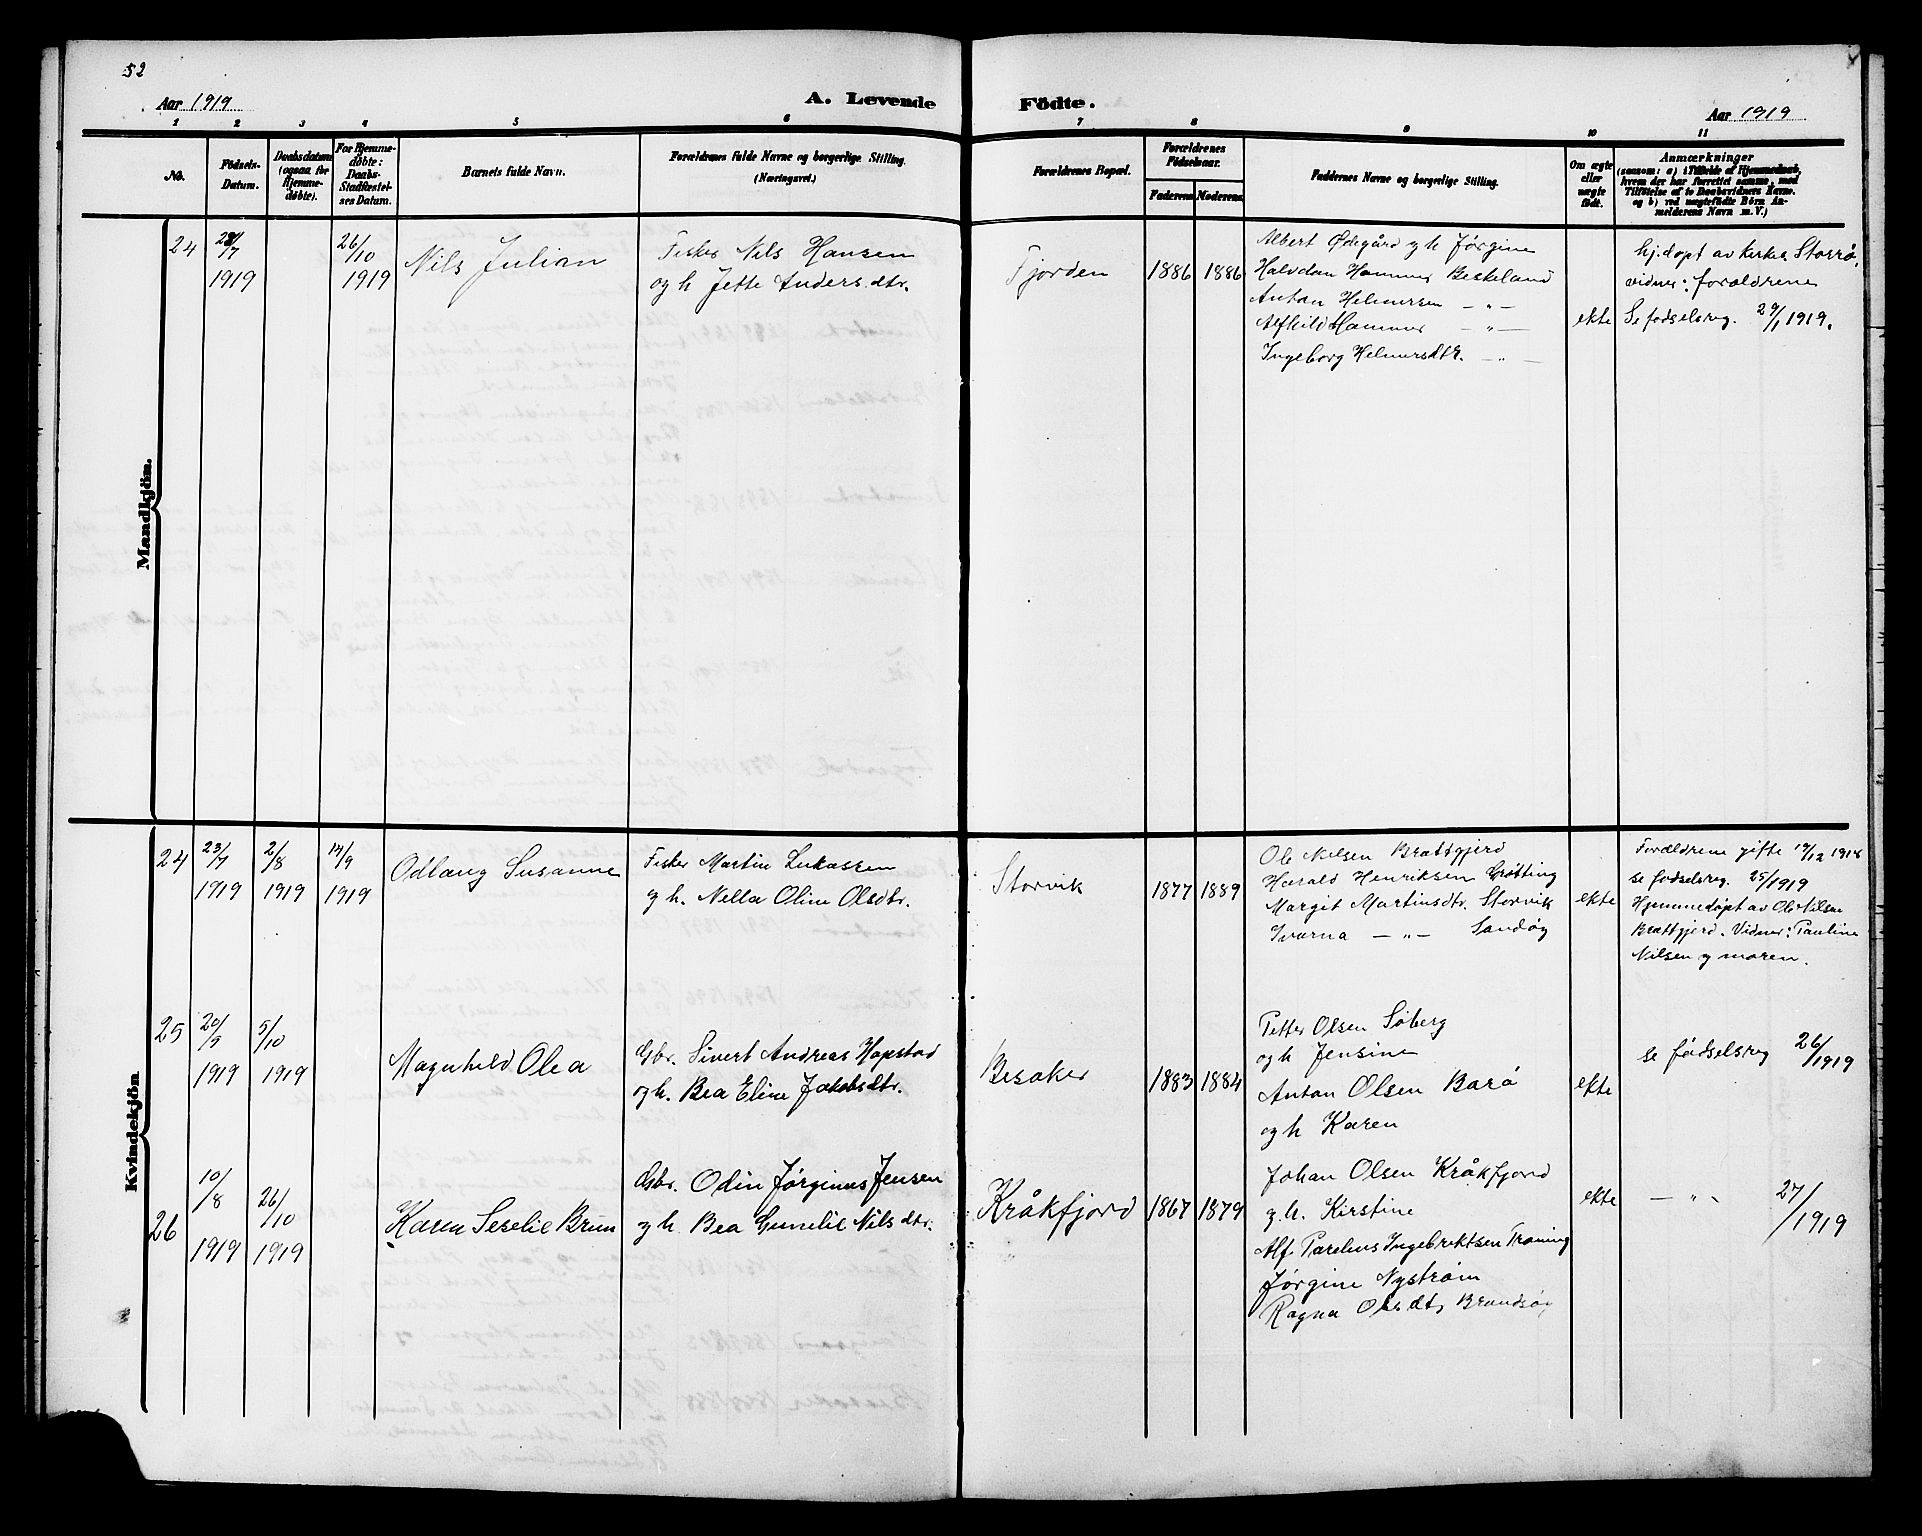 52
Aar 1919
A. Levende
Födte.
Aar 1919
1 2 3 4 5 6 7 8 9 10 11
No.
Födsels-
Datum.
Daabsdatum
(ogsaa for
Hjemme-
døbte).
For Hjemme-
døbte:
Daabs-
Stadfæstel-
ses Datum.
Barnets fulde Navn.
Forældrenes fulde Navne og borgerlige Stilling.
(Næringsvei.)
Forældrenes Bopæl.
Forældrenes
Fødselsaar.
Faderens
Moderens
Faddernes Navne og borgerlige Stilling.
Om ægte
eller
uægte
født.
Anmærkninger
(saasom: a) i Tilfælde af Hjemmedaab,
hvem der har forrettet samme, med
Tilføielse af to Daabsvidners Navne,
og b) ved uægtefødte Börn An-
melderens Navn m. V.)
Mandkjön.
24
/7
1919
26/10
1919
Nils Julian
Fisker Nils Hansen
og h. Jette Anders.dtr.
Fjorden
1886
1886
Albert Ødegård og h Jørgine
Halvdan Hammer Beskeland
Anton Helmersen — " —
Alfhild Hammer — " —
Ingeborg Helmersdtr. — " —
ekte
hj.døpt av kirkes. Storrø,
vidner: forældrene
Se fødselsreg. 29/1 1919.
Kvindekjön
24
23/7
1919
2/8
1919
14/9
1919
Odlaug Susanne
Fisker Martin Lukassen
og h. Nella Oline Olsdtr.
Storvik
1877
1889
Ole Nilsen Brattgjerd
Harald Henriksen Grøtting
Margit Martinsdtr. Storvik
Ivarna — " — Sandøy
ekte
Forældrene gifte 19/12 1918
se fødselsreg. 25/1919
Hjemmedøpt av Ole Nilsen
Brattgjerd. Vidner: Pauline
Nilsen og moren.
25
20/
1919
5/10
1919
Magnhild Olea
Gbr. Sivert Andreas Hopstad
og h. Bea Eline Jakobsdtr.
Besaker
1883
1884
Petter Olsen Søberg
og h Jensine
Anton Olsen Barø
og h Karen
ekte
se fødselsreg 26/1919
26
10/8
1919
26/10
1919
Karen Seselie Brun
Gbr. Odin Jørginus Jensen
og h. Bea Gunelie Nils dtr.
Kråkfjord
1867
1879
Johan Olsen Kråkfjord
g. h. Kirstine
Alf Parelius Ingebriktsen Træning
Jørgine Nystrøm
Ragna Olesdtr. Brandsøy
ekte
— " — 27/1919